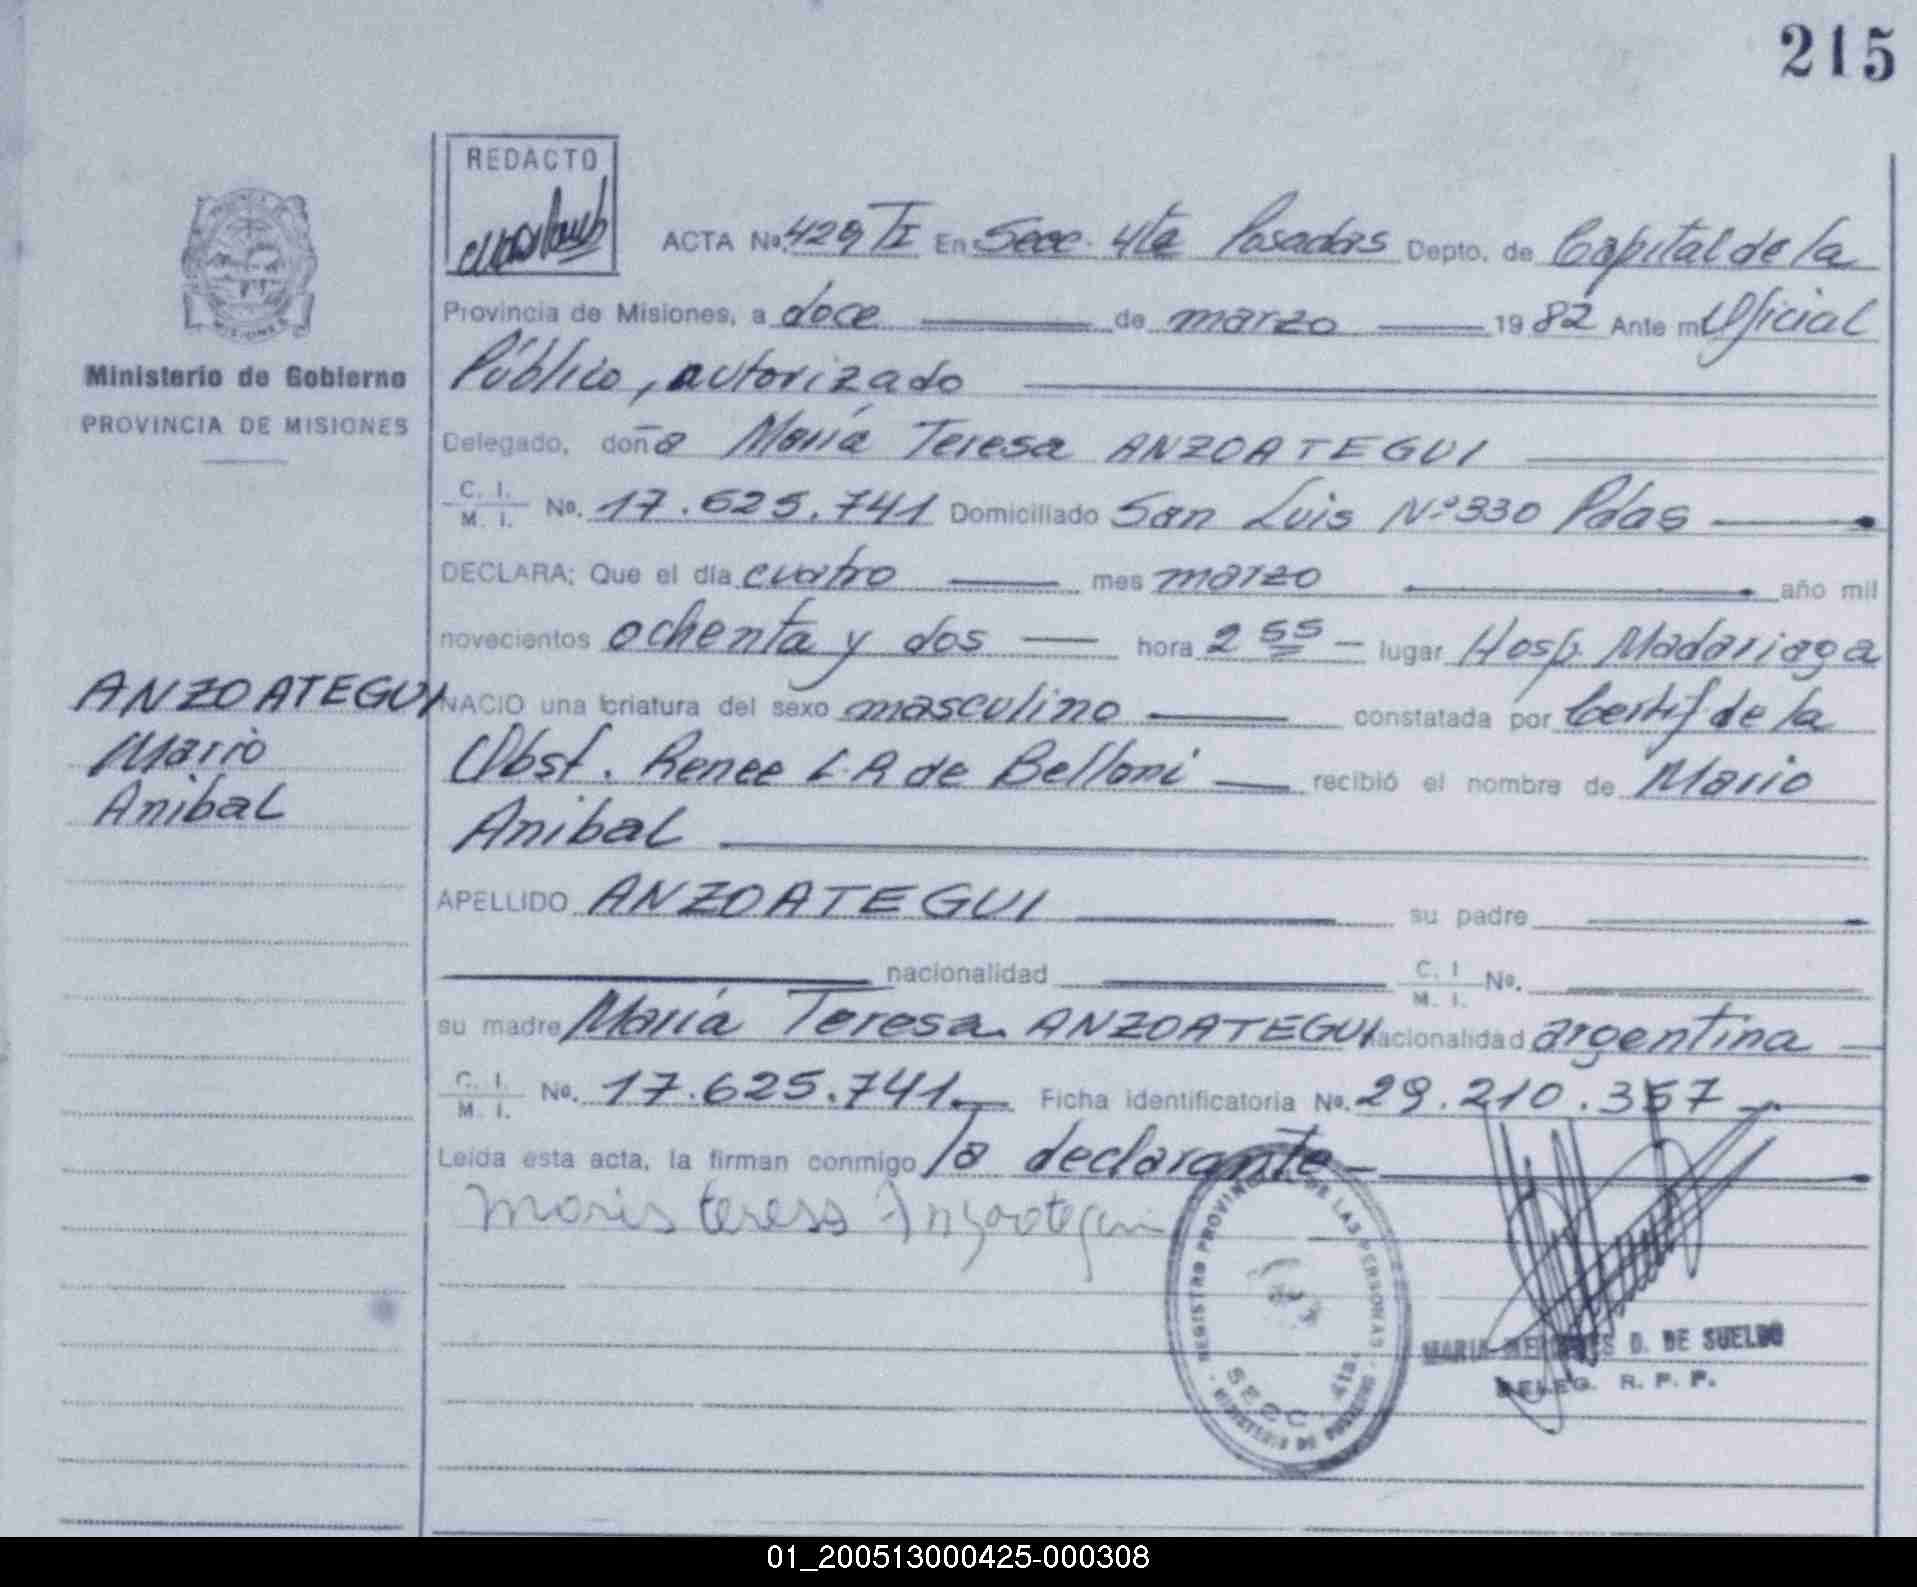 215
REDACTO
ACTA No. 429 TI En Secc. 4ta Posadas Depto. de Capital de la
Provincia de Misiones, a doce de marzo 1982 Ante mí Oficial
Ministerio de Gobierno
PROVINCIA DE MISIONES
Público, autorizado
Delegado, doña María Teresa ANZOATEGUI
C. I. M. I. No. 17.625.741 Domiciliado San Luis Nº 330 Pdas
DECLARA; Que el día cuatro mes marzo año mil
novecientos ochenta y dos hora 2 55 lugar Hosp. Madariaga
ANZOATEGUI
Mario
Anibal
NACIO una criatura del sexo masculino constatada por Certif de la
Obst. Renee L.A de Belloni recibió el nombre de Mario
Anibal
APELLIDO ANZOATEGUI su padre
nacionalidad C. I M. I. No.
su madre María Teresa ANZOATEGUI nacionalidad argentina
C. I. M. I. No. 17.625.741. Ficha identificatoria No. 29.210.357
Leída esta acta, la firman conmigo la declarante
Maria teresa Anzoategui
REGISTRO PROVINCIAL DE LAS PERSONAS
SECC 4ta.
MINISTERIO DE GOBIERNO
D. DE SUELDO
DELEG. R. P. P.
01_200513000425-000308